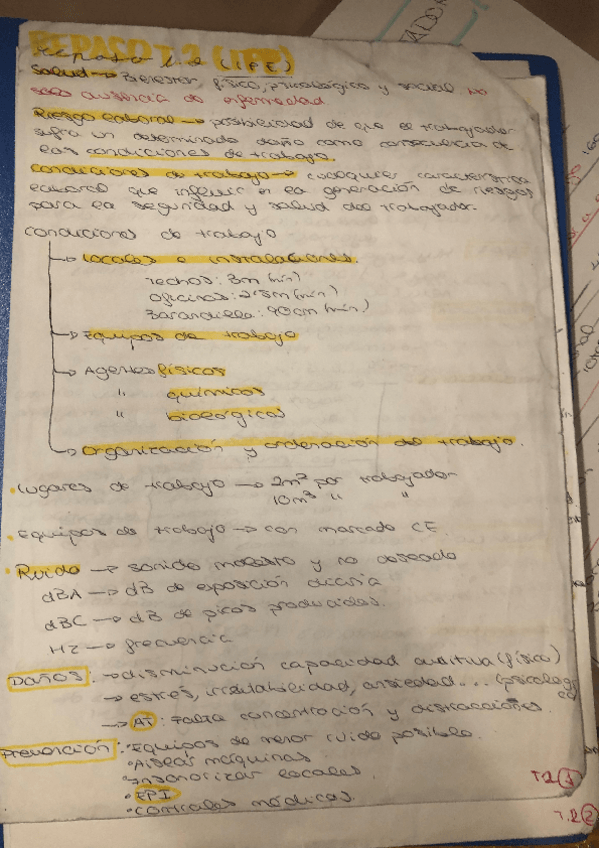 REPASO T.2 (IPE)
Salud → Bienestar, físico, psicológico y social no
solo ausencia de enfermedad
Riesgo laboral → posibilidad de que el trabajador
sufra un determinado daño como consecuencia de
las condiciones de trabajo.
Condiciones de trabajo → cualquier característica
laboral que influir en la generación de riesgos
para la seguridad y salud del trabajador.
Condiciones de trabajo
→ Locales e instalaciones.
Techos: 3m (mín)
Oficinas: 2'5m (mín)
Barandilla: 90cm (mín)
→ Equipos de trabajo
→ Agentes físicos
" químicos
" biológicos
→ Organización y ordenación del trabajo.
• Lugares de trabajo → 2m² por trabajador
10m³ " "
• Equipos de trabajo → con marcado CE
• Ruido → sonido molesto y no deseado
dBA → dB de exposición diaria
dBC → dB de picos producidos.
Hz → frecuencia
Daños: → disminución capacidad auditiva (físico)
→ estrés, irritabilidad, ansiedad...
→ AT: Falta concentración y distracciones.
Prevención: • Equipos de menor ruido posible.
• Aislar máquinas
• Insonorizar locales.
• EPI
• Controles médicos.
T.2 ①
T.2 ②